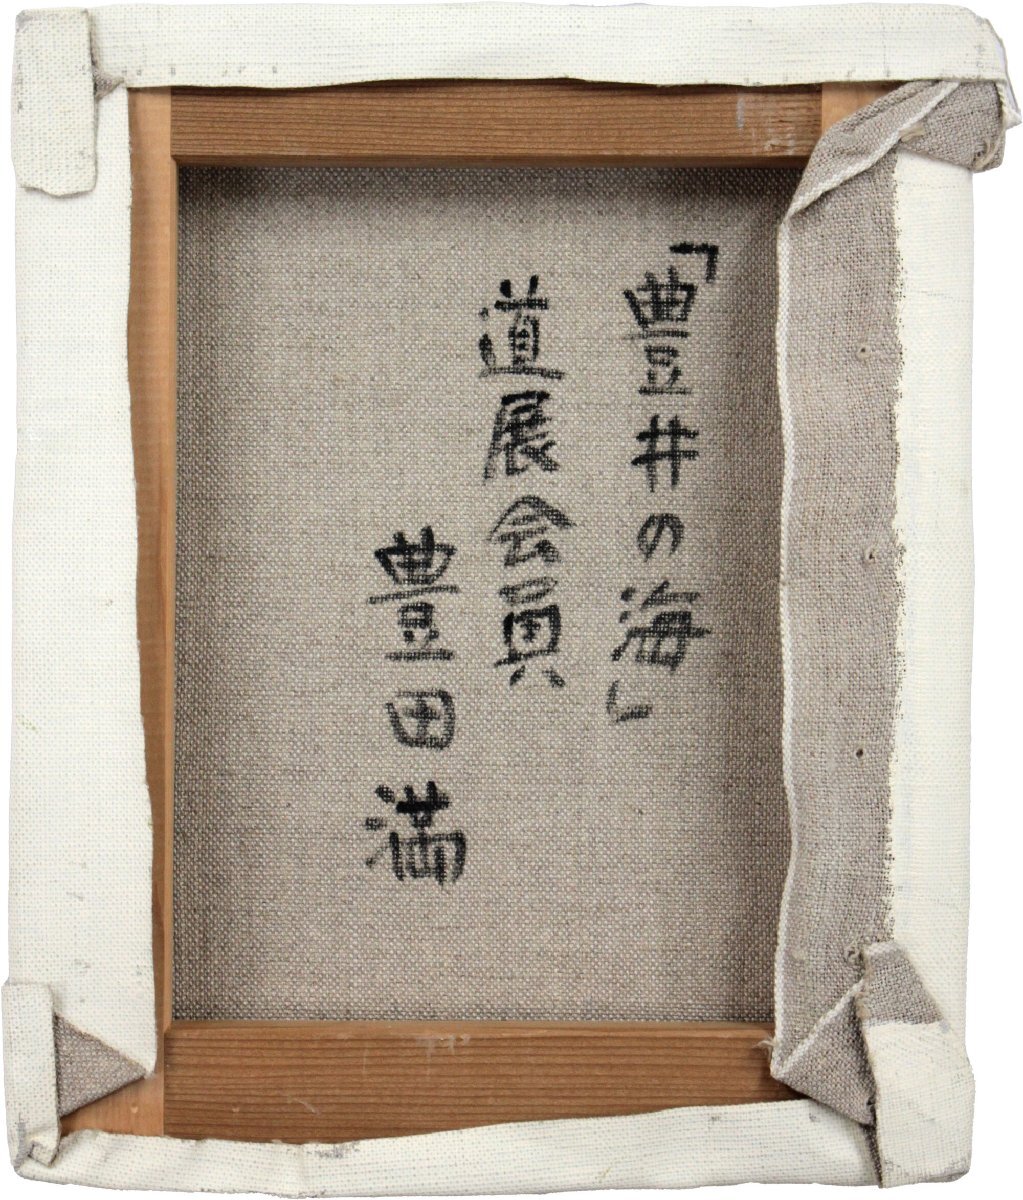 「豊井の海」
道展会員
豊田満